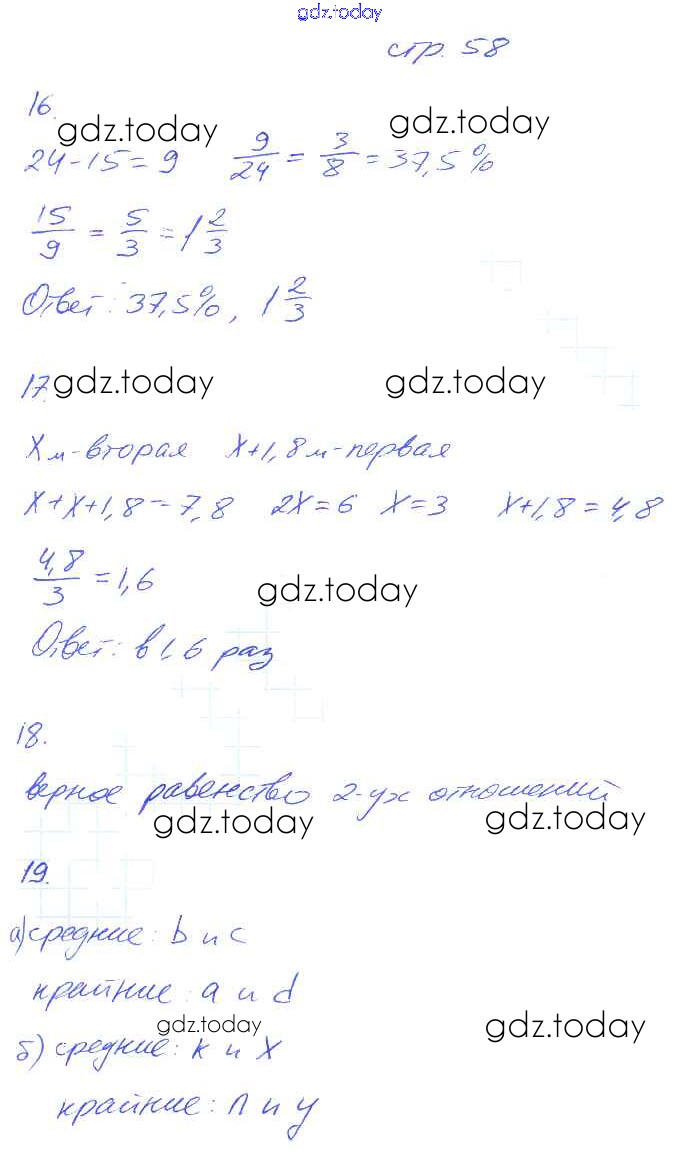 gdz.today
стр. 58
16.
gdz.today gdz.today
24-15=9 9/24 = 3/8 = 37,5%
15/9 = 5/3 = 1 2/3
Ответ: 37,5%, 1 2/3
17. gdz.today gdz.today
Xм-вторая X+1,8м-первая
X+X+1,8=7,8 2X=6 X=3 X+1,8=4,8
4,8/3 = 1,6
gdz.today
Ответ: в 1,6 раз
18.
верное равенство 2-ух отношений
gdz.today gdz.today
19.
а) средние: b и c
крайние: a и d
gdz.today gdz.today
б) средние: к и X
крайние: п и y